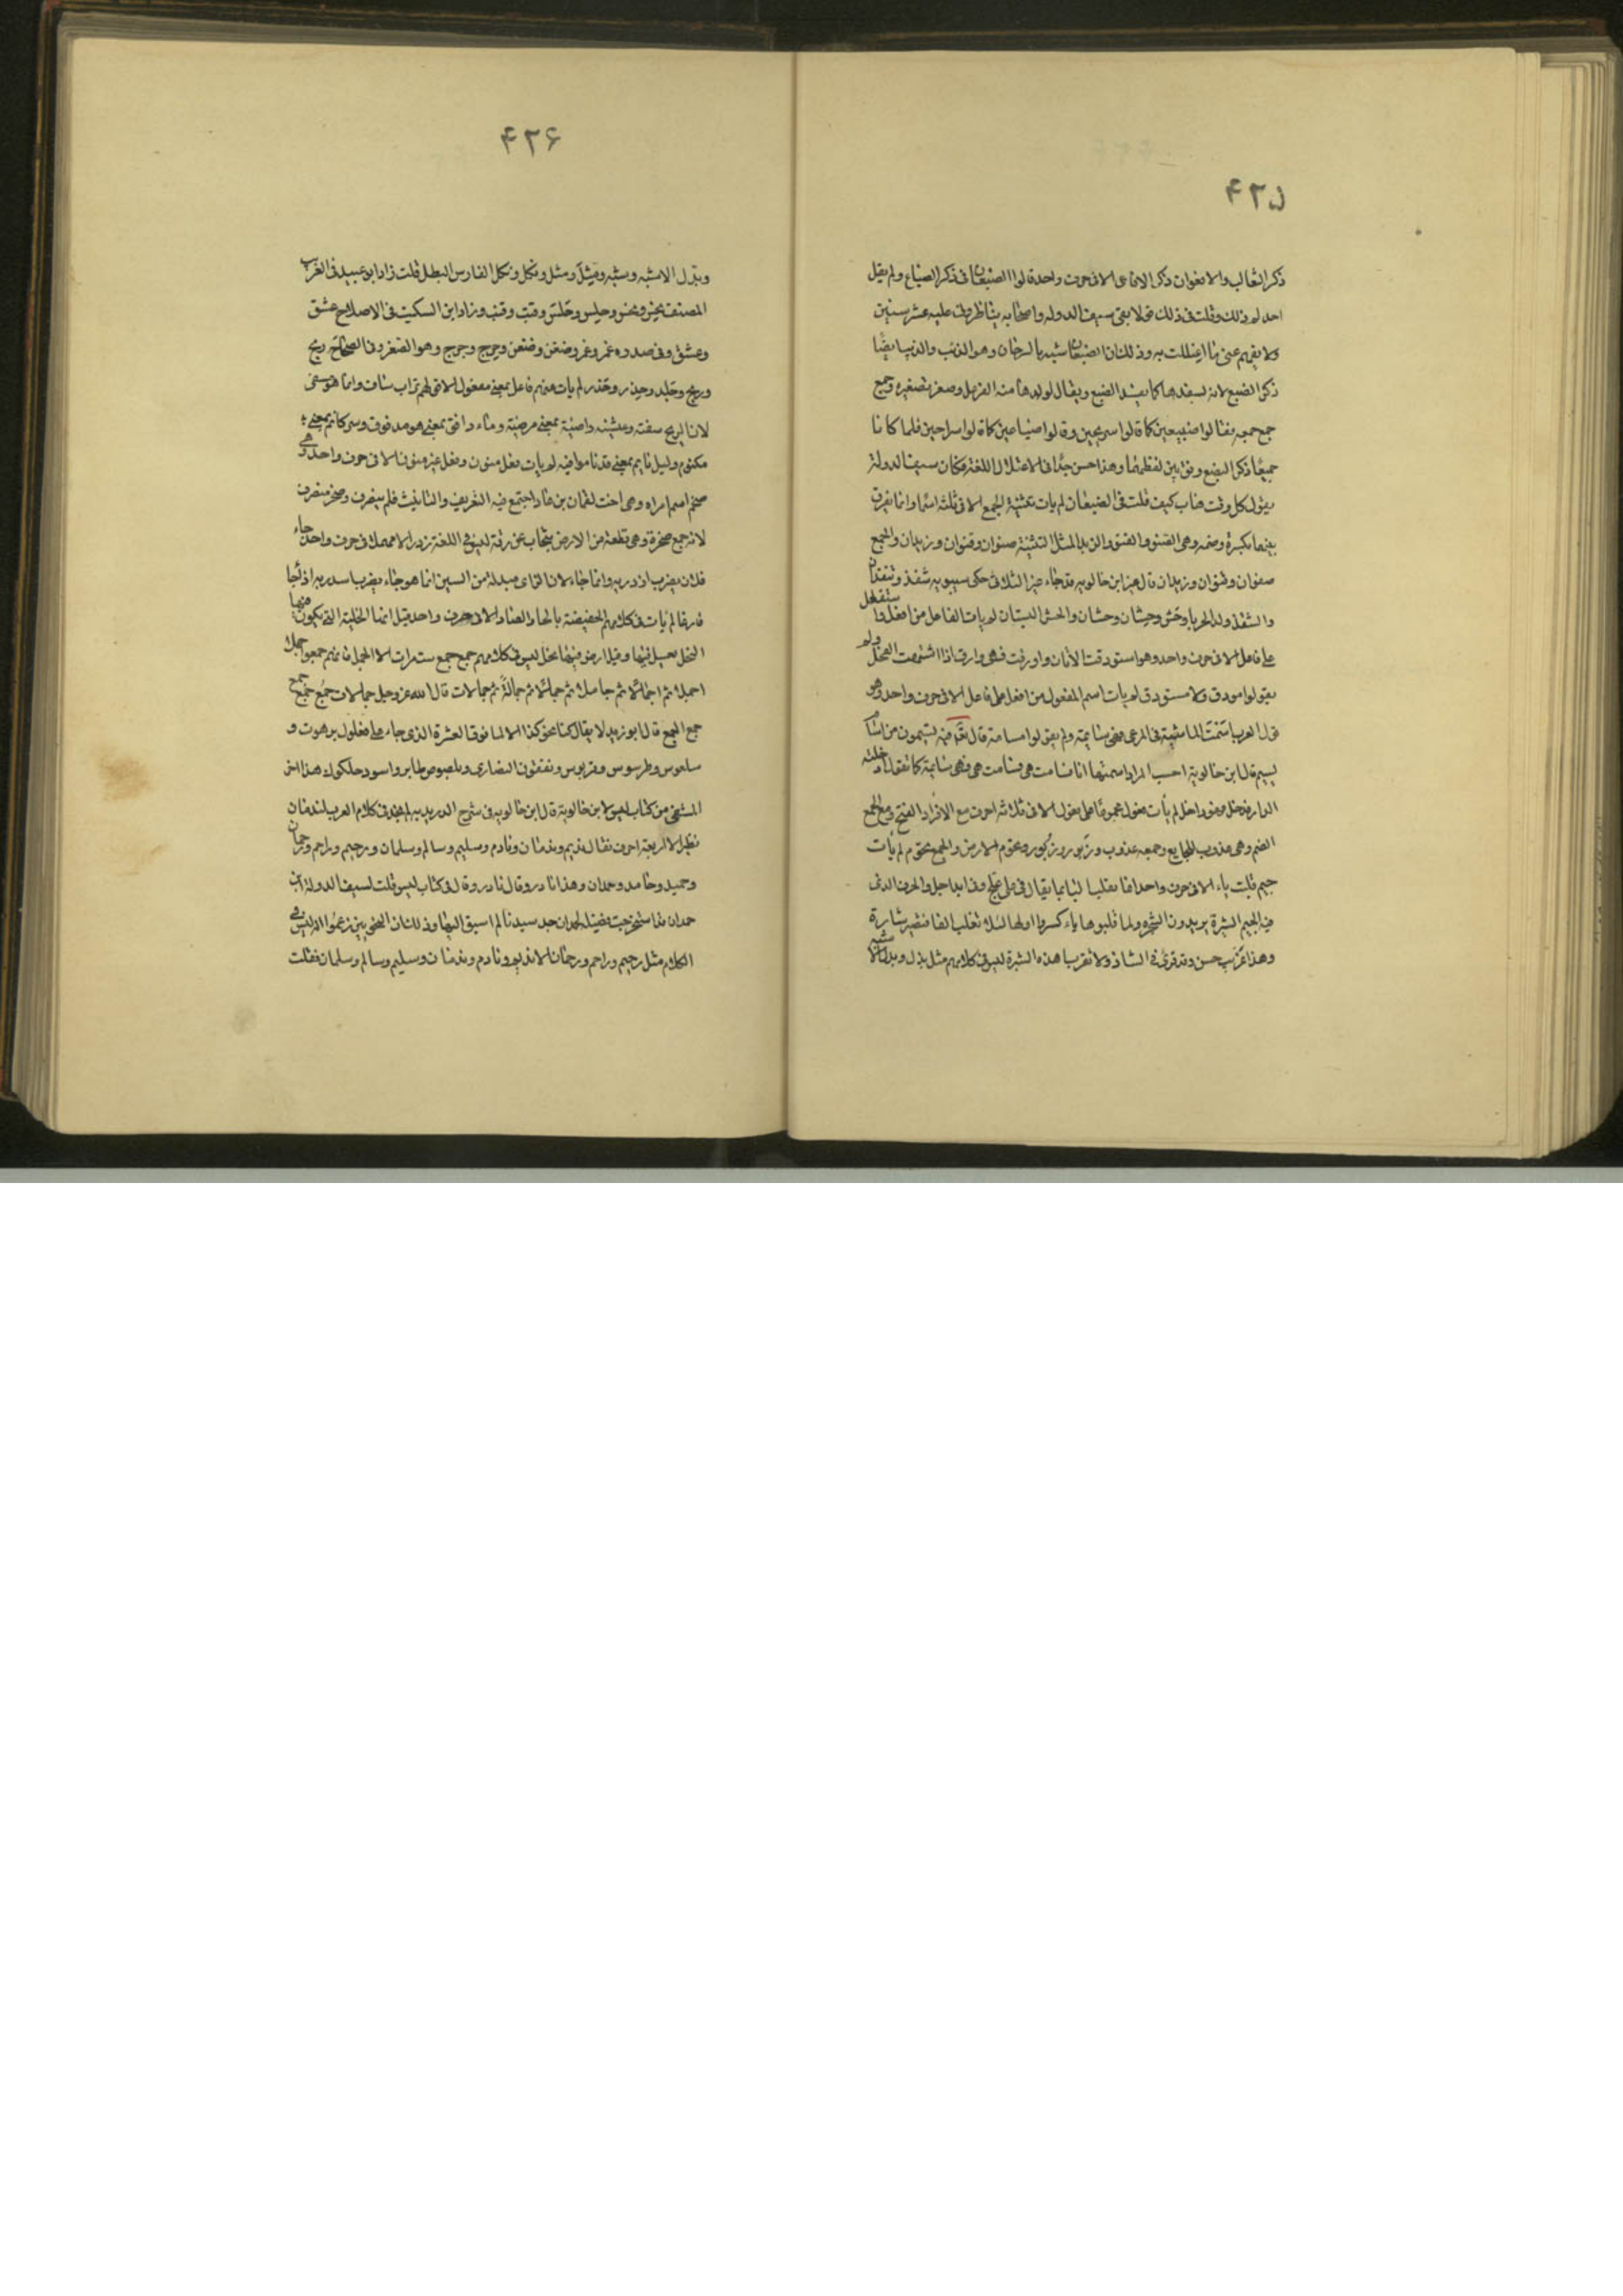 ۴۲۵
ذكر الثعالب والافعوان ذكر الافاعى الا فى حرف واحد قالوا الضبعان فى ذكر الضباع ولم يقل
احد لم ذلك وقلت فى ذلك قولا بقى سيف الدوله واصحابه يناظرونى عليه عشر سنين
ولا يفهم عنى ما اعتللت به وذلك ان الضبعان شبه بالسرحان وهو الذئب والذيب ايضا
ذكر الضبع لانه يسفدها كما يسفد الضبع ويقال لولدها منه الفرعل وصغر تصغيره وجمع
جمع جمعه فقالوا ضبيعين كما قالوا سريحين وقالوا ضباعين كما قالوا سراحين فلما كانا
جميعا ذكر الضبع وفق بين لفظيهما وهذا حسن جدا فى الاعتلال للغة فكان سيف الدولة
يقول كل وقت هات كيف قلت فى الضبعان لم يات تثنية الجمع الا فى ثلثة اسما وانما يفرق
بينهما بكسرة وضمه وهى الصنو والقنو والرئد المثل التثنية صنوان وقنوان ورئدان والجمع
صنوان وقنوان ورئدان قال غير ابن خالويه قد جاء غير الثلاثة حكى سيبويه شقذ وشقذان
والشقذ ولد الحرباء وحش وحشان وحشان والحش البستان لم يات الفاعل من افعل واستفعل
على فاعل الا فى حرف واحد وهو استودقت الاتان واودقت فهى وادق اذا اشتهت الفحل ولم
يقولوا مودق ولا مستودق لم يات اسم المفعول من افعل على فاعل الا فى حرف واحد وهو
قول العرب اسمت الماشية فى المرعى فهى سائمة ولم يقولوا مسامة قال تع فيه تسيمون من اسام
يسيم قال ابن خالويه احسب المراد اسمتها انا فسامت هى فسامت هى فهى سائمة كما تقول ادخلته
الدار فدخل فهو داخل لم يأت فعول مجموعا على فعول الا فى ثلاثه احرف مع الافراد الفتح ومع الجمع
الضم وهى عذوب للجايع وجمعه عذوب وزبور وزبور وتخوم الارض والجمع تخوم لم يأت
جيم قلبت ياء الا فى حرف واحد انما تقلب الياء جيما يقال فى على علج وفى ايل اجل والحرف الذى
فيه الجيم الشيرة يريدون الشجرة ولما قلبوها ياء كسروا اولها لئلا تنقلب الفا فتصير شارة
وهذا غريب حسن وقد قرئ فى الشاذ ولا تقربا هذه الشيرة ليس فى كلامهم مثل بذل وبذل الا شبه
۴۲۶
وبدل الا شبه وشبه ومثل ومثل ونكل ونكل الفارس البطل قلت زاد ابو عبيد فى الغريب
المصنف نجس ونجس وحلس وحلس وقتب وقتب وزاد ابن السكيت فى الاصلاح عشق
وعشق وفى صدره غمر وغمر وضغن وضغن وحرج وحرج وهو الصغر وفى الصحاح ربح
وربح وجلد وجلد وحذر وحذر لم يات عنهم فاعل بمعنى مفعول الا قولهم تراب ساف وانما هو مسفى
لان الريح سفته وعيشة راضية بمعنى مرضية وماء دافق بمعنى هو مدفوق وسر كاتم بمعنى
مكتوم وليل نايم بمعنى قد ناموا فيه لم يات فعل منون وفعل غير منون الا فى حرف واحد وهى
صخر اسم امراه وهى اخت لقمان بن عاد اجتمع فيه التعريف والتانيث فلم ينصرف وصخر منصرف
لانه جمع صخرة وهى قطعة من الارض تنجاب عن رقة ليس فى اللغة زدر الا مهملا فى حرف واحد جاء
فلان يضرب ازدريه وانما جاء لان الزاى مبدلة من السين انما هو جاء يضرب اسدريه اذا جاء
فارغا لم يأت فى كلامهم الحفيضة بالحاء والضاد الا فى حرف واحد قيل انما الخلية التى يكون فيها
النحل تعسيل فيها وقيل ارض فيها نحل ليس فى كلامهم جمع جمع ست مرات الا الجمل فانهم جمعوا جملا
اجملا ثم اجمالا ثم جاملا ثم جمالا ثم جمالة ثم جمالات قال الله عز وجل جمالات جمع جمع جمع
جمع الجمع قال ابو زيد لا يقال كنا نحو كذا الا لما فوق العشرة الذى جاء على فعلول برهوت و
سلعوس وطرسوس وقربوس ونفقفور النصارى وبلصوص طاير واسود حلكوك هذا اخر
المنتقى من كتاب ليس لابن خالوية قال ابن خالويه فى شرح الدريديه لم يجد فى كلام العرب لندمان
نظيرا الا اربعة احرف يقال نديم وندمان ونادم وسليم وسالم وسلمان ورحيم وراحم ورحمان
وحميد وحامد وحمدان وهذا نادر وقال نادر وقال فى كتاب ليس قلت لسيف الدولة ابن
حمدان قد استخرجت فضيله لحمدان جد سيدنا لم اسبق اليها وذلك ان النحويين زعموا انه ليس فى
الكلام مثل رحيم وراحم ورحمان الا نديم ونادم وندمان وسليم وسالم وسلمان فقلت